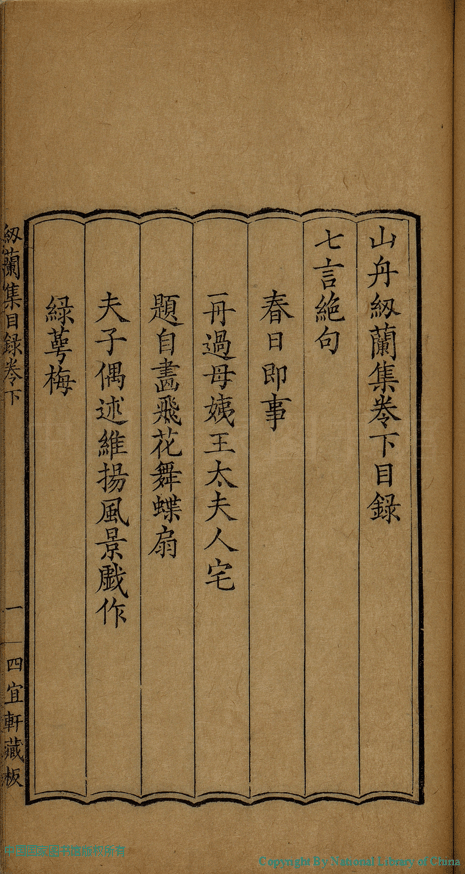 山舟紉蘭集卷下目録
七言絶句
春日即事
再過母姨王太夫人宅
題自畵飛花舞蝶扇
夫子偶述維揚風景戲作
緑萼梅
紉蘭集目録卷下
一
四宜軒藏板
Copyright By National Library of China